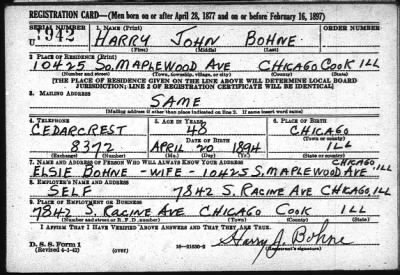 REGISTRATION CARD—(Men born on or after April 28, 1877 and on or before February 16, 1897)
SERIAL NUMBER 1. NAME (Print) ORDER NUMBER
U 1942 HARRY JOHN BOHNE
(First) (Middle) (Last)
2. PLACE OF RESIDENCE (Print)
10425 SO. MAPLEWOOD AVE CHICAGO COOK ILL
(Number and street) (Town, township, village, or city) (County) (State)
[THE PLACE OF RESIDENCE GIVEN ON THE LINE ABOVE WILL DETERMINE LOCAL BOARD
JURISDICTION; LINE 2 OF REGISTRATION CERTIFICATE WILL BE IDENTICAL]
3. MAILING ADDRESS
SAME
[Mailing address if other than place indicated on line 2. If same insert word same]
4. TELEPHONE 5. AGE IN YEARS 6. PLACE OF BIRTH
CEDARCREST 48 CHICAGO
DATE OF BIRTH (Town or county)
8372 APRIL 20 1894 ILL
(Exchange) (Number) (Mo.) (Day) (Yr.) (State or country)
7. NAME AND ADDRESS OF PERSON WHO WILL ALWAYS KNOW YOUR ADDRESS CHICAGO,
ELSIE BOHNE - WIFE - 10425 S. MAPLEWOOD AVE ILL
8. EMPLOYER'S NAME AND ADDRESS
SELF 7842 S. RACINE AVE CHICAGO, ILL
9. PLACE OF EMPLOYMENT OR BUSINESS
7842 S. RACINE AVE CHICAGO COOK ILL
(Number and street or R. F. D. number) (Town) (County) (State)
I AFFIRM THAT I HAVE VERIFIED ABOVE ANSWERS AND THAT THEY ARE TRUE.
D. S. S. Form 1
(Revised 4-1-42) 16—21630-2 Harry J. Bohne
(Registrant's signature)